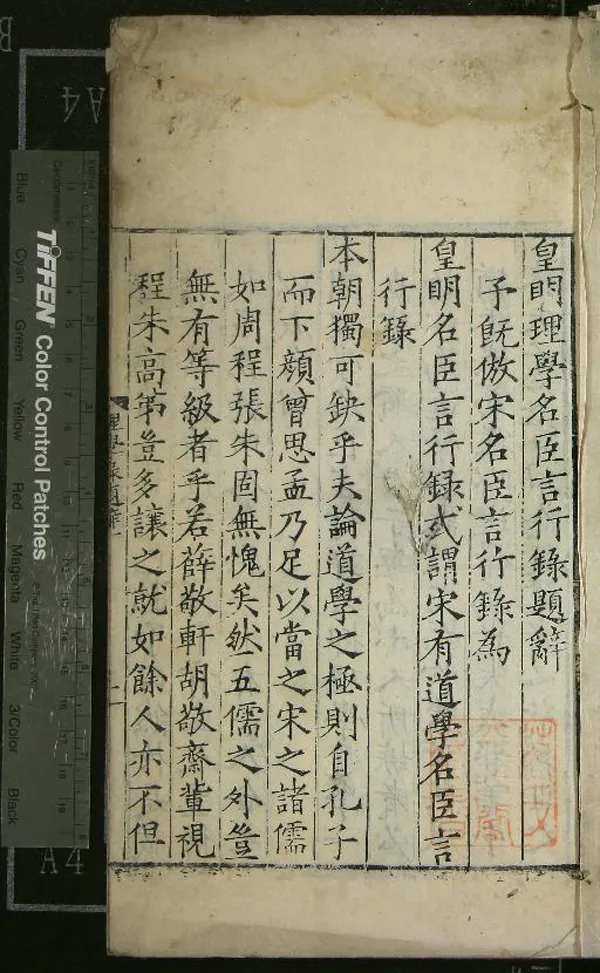 皇明理學名臣言行錄題辭
予既倣宋名臣言行錄為
皇明名臣言行録或謂宋有道學名臣言
行錄
本朝獨可缺乎夫論道學之極則自孔子
而下顔曾思孟乃足以當之宋之諸儒
如周程張朱固無愧矣然五儒之外豈
無有等級者乎若薛敬軒胡敬齋輩視
程朱高第豈多讓之就如餘人亦不但
A4
B
TIFFEN Color Control Patches
Centimetres
Blue
Cyan
Green
Yellow
Red
Magenta
White
3/Color
Black
A4